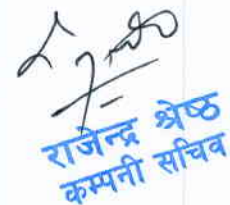 राजेन्द्र श्रेष्ठ
कम्पनी सचिव